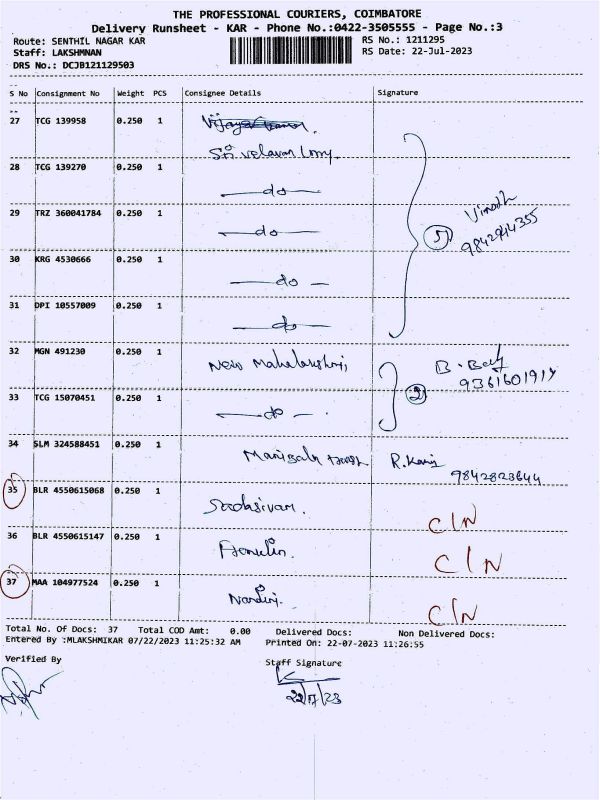 THE PROFESSIONAL COURIERS, COIMBATORE
Delivery Runsheet - KAR - Phone No.:0422-3505555 - Page No.:3
Route: SENTHIL NAGAR KAR RS No.: 1211295
Staff: LAKSHMNAN RS Date: 22-Jul-2023
DRS No.: DCJB121129503
S No Consignment No Weight PCS Consignee Details Signature
27 TCG 139958 0.250 1
Sri velavan Lorry.
28 TCG 139270 0.250 1 do
29 TRZ 360041784 0.250 1 do
Vinoth
5
30 KRG 4530666 0.250 1 do
31 DPI 10557009 0.250 1 do
32 MGN 491230 0.250 1 New Mahalakshmi
9361601914
33 TCG 15070451 0.250 1 do 2
34 SLM 324588451 0.250 1 R.Kani
9842823644
35 BLR 4550615068 0.250 1 Sadasivam. C/N
36 BLR 4550615147 0.250 1 C/N
37 MAA 104977524 0.250 1 Nandini. C/N
Total No. Of Docs: 37 Total COD Amt: 0.00 Delivered Docs: Non Delivered Docs:
Entered By :MLAKSHMIKAR 07/22/2023 11:25:32 AM Printed On: 22-07-2023 11:26:55
Verified By Staff Signature
22/7/23